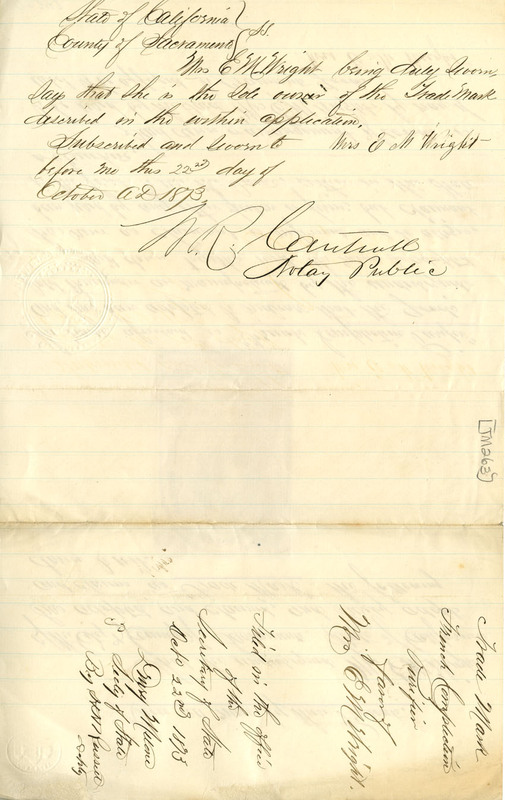 State of California } ss.
County of Sacramento }
Mrs E M Wright being duly sworn,
says that she is the sole owner of the Trade Mark
described in the within application.
Subscribed and sworn to Mrs E M Wright
before me this 22nd day of
October A D 1873
W. R. Cantwell
Notay Public
[TM263]
Trade Mark
French Complection
Purifier
Favor of
Mrs E M Wright.
Filed in the office
of the
Secretary of State
Oct 22d 1873
Drury Melone
Secty of State
By
Depty